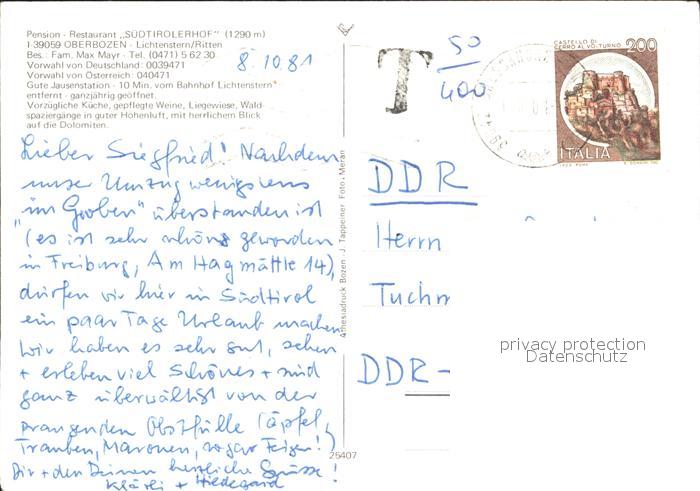 Pension - Restaurant „SÜDTIROLERHOF" (1290 m)
I-39059 OBERBOZEN - Lichtenstern/Ritten
Bes.: Fam. Max Mayr - Tel. (0471) 5 62 30
Vorwahl von Deutschland: 0039471
Vorwahl von Österreich: 040471
Gute Jausenstation - 10 Min. vom Bahnhof Lichtenstern
entfernt - ganzjährig geöffnet.
Vorzügliche Küche, gepflegte Weine, Liegewiese, Wald-
spaziergänge in guter Höhenluft, mit herrlichem Blick
auf die Dolomiten.
8. 10 81
Lieber Siegfried! Nachdem
unser Umzug wenigstens
"im Groben" überstanden ist
(es ist sehr schön geworden
in Freiburg, Am Hagmättle 14),
dürfen wir hier in Südtirol
ein paar Tage Urlaub machen
Wir haben es sehr gut, sehen
+ erleben viel Schönes + sind
ganz überwältigt von der
prangenden Obstfülle (Äpfel,
Trauben, Maronen, sogar Feigen!)
Dir + den Deinen herzliche Grüsse!
Klärli + Hildegard
Athesiadruck Bozen J. Tappeiner Foto - Meran
25407
T
50
400
CASTELLO DI
CERRO AL VOLTURNO
200
ITALIA
DDR
Herrn
Tuchm
DDR-
privacy protection
Datenschutz